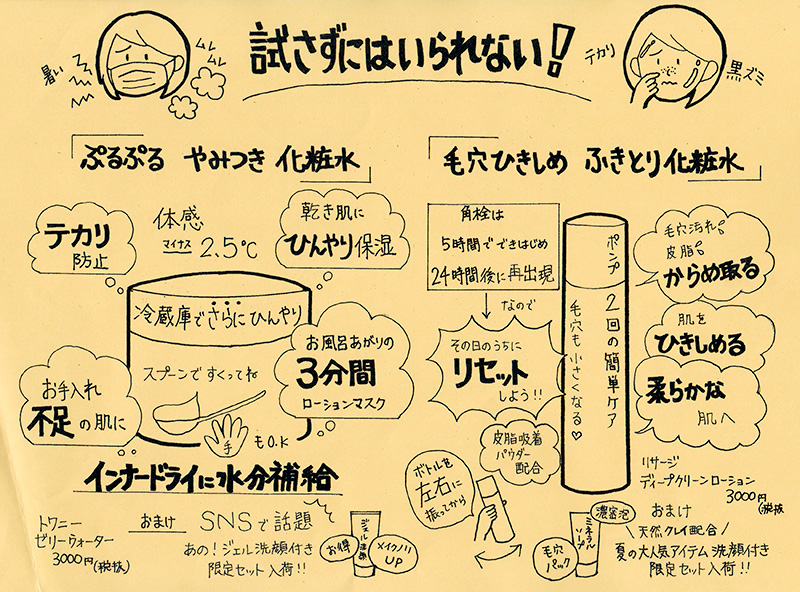 試さずにはいられない!
暑い
ムレ
ムレ
テカリ
黒ズミ
「ぷるぷる やみつき 化粧水」
テカリ
防止
体感
マイナス 2.5℃
乾き肌に
ひんやり保湿
冷蔵庫でさらにひんやり
スプーンですくってね
手もO.K
お手入れ
不足の肌に
お風呂あがりの
3分間
ローションマスク
インナードライに水分補給
トワニー
ゼリーウォーター
3000円(税抜)
おまけ
SNSで話題
あの!ジェル洗顔付き
限定セット入荷!!
ジェル洗顔
お得
メイクノリ
UP
「毛穴ひきしめ ふきとり化粧水」
角栓は
5時間でできはじめ
24時間後に再出現
なので
その日のうちに
リセット
しよう!!
皮脂吸着
パウダー
配合
ボトルを
左右に
振ってから
ポンプ
2回の簡単ケア
毛穴も小さくなる♡
毛穴汚れ
皮脂
からめ取る
肌を
ひきしめる
柔らかな
肌へ
リサージ
ディープクリーンローション
3000円(税抜
おまけ
天然クレイ配合
夏の大人気アイテム 洗顔付き
限定セット入荷!!
濃密泡
ミネラルソープ
毛穴
パック